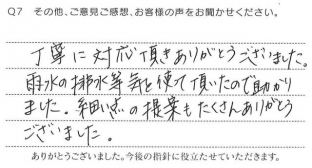 Q7 その他、ご意見ご感想、お客様の声をお聞かせください。
丁寧に対応頂きありがとうございました。
雨水の排水等気を使て頂いたので助かり
ました。細い点の提案もたくさんありがとう
ございました。
ありがとうございました。今後の指針に役立たせていただきます。